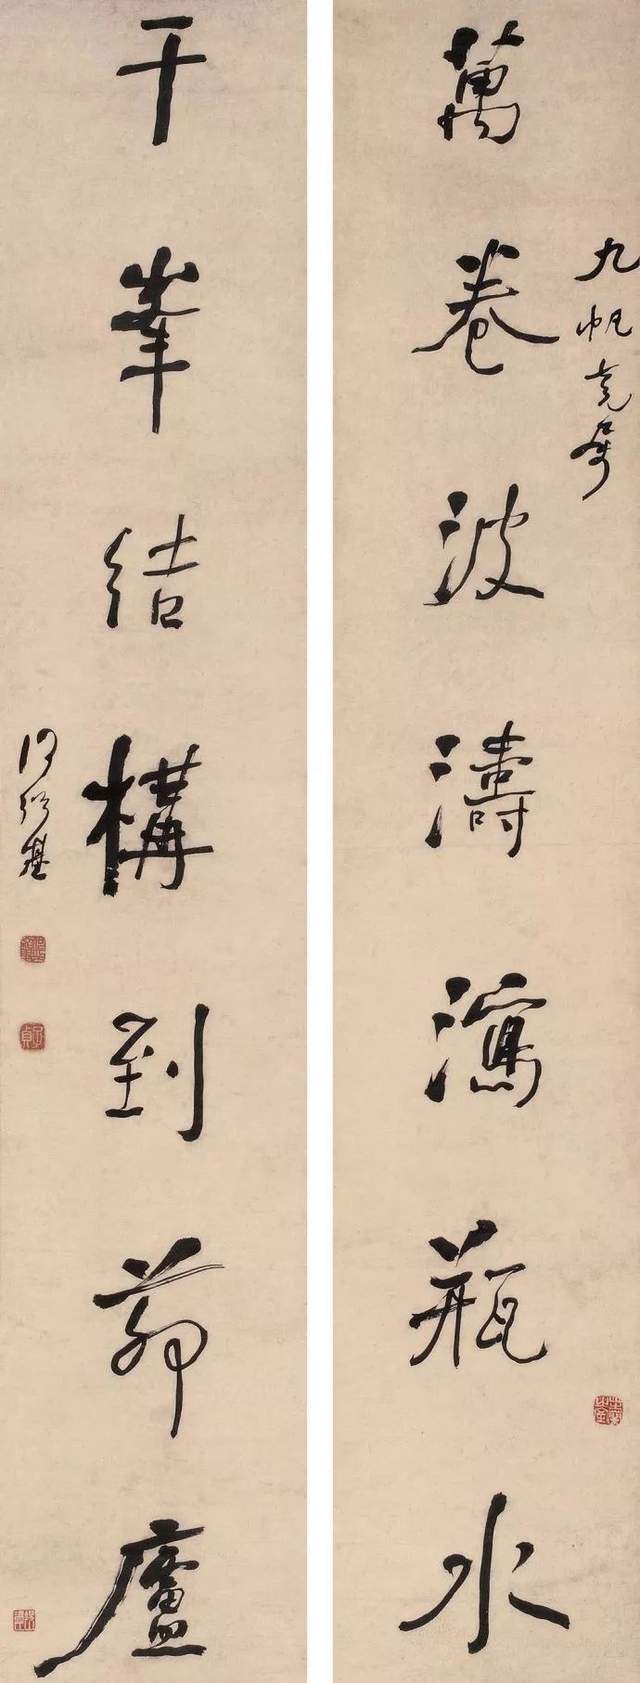 萬卷波濤瀉瓶水
九帆
千峯結構到茆廬
何紹基
子貞